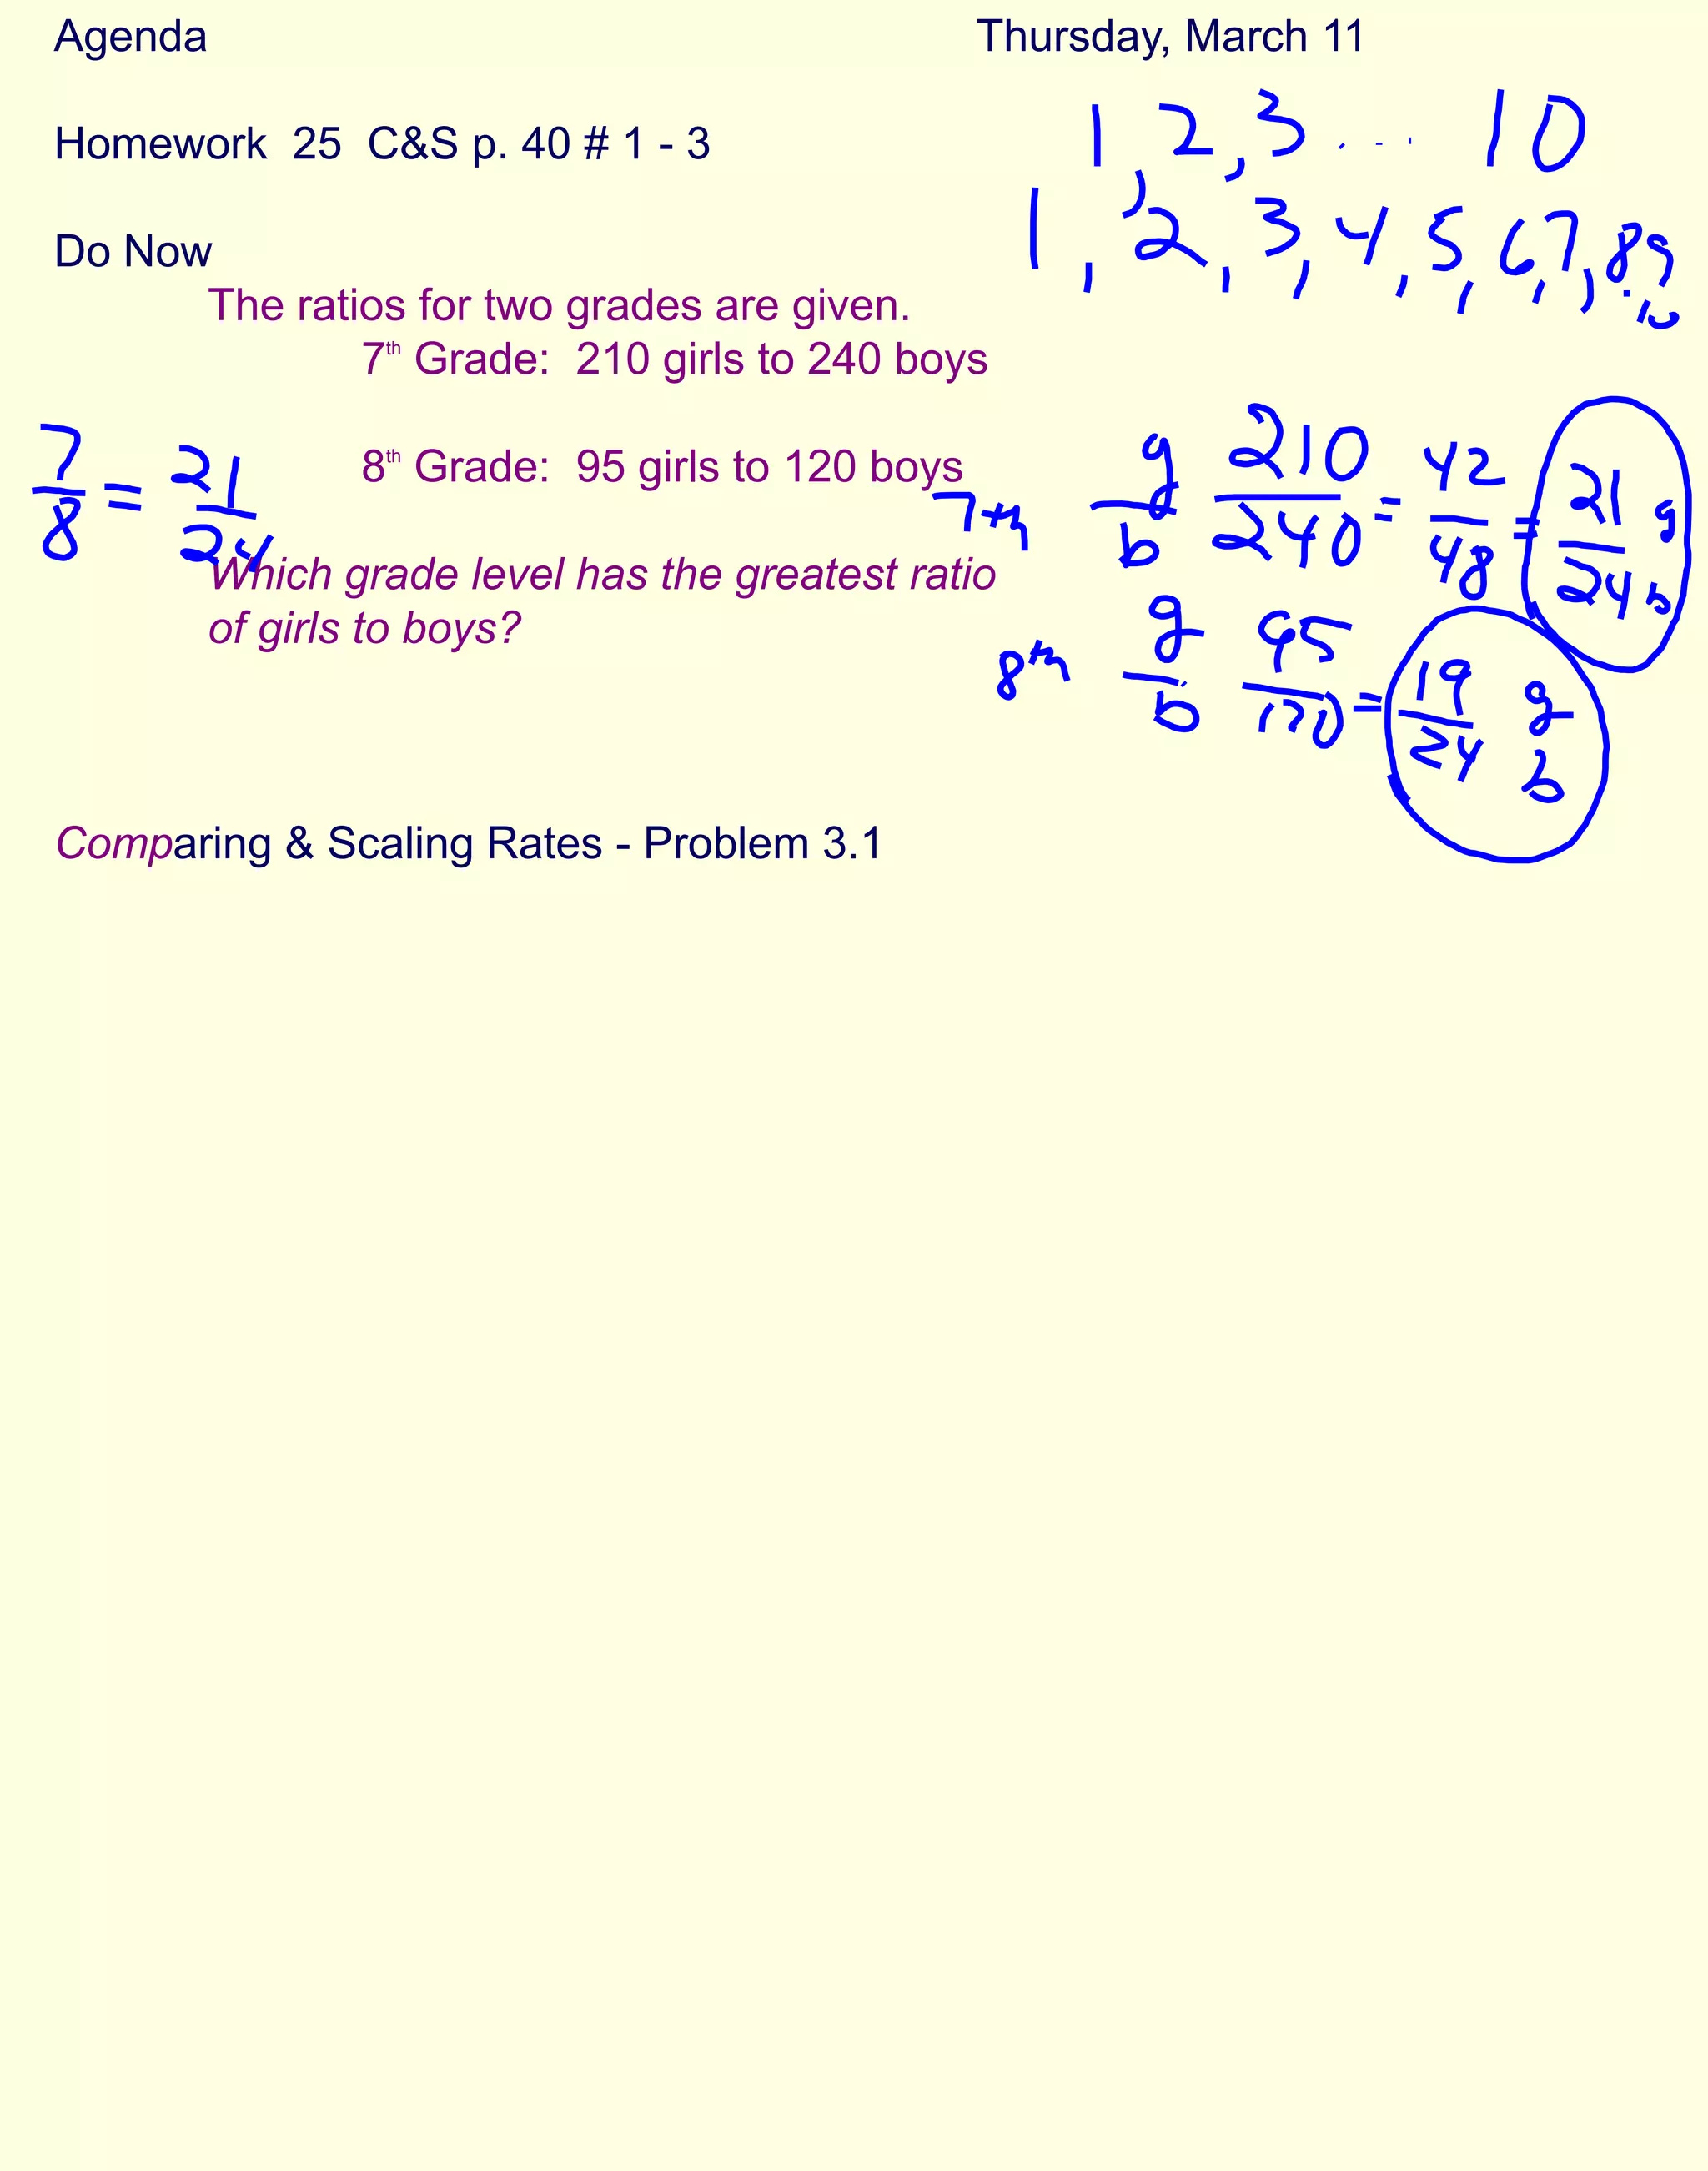 Agenda
Thursday, March 11
1, 2, 3 . - ' 10
Homework 25 C&S p. 40 # 1 - 3
1, 2, 3, 4, 5, 6, 7, 8, 9, 10
Do Now
The ratios for two grades are given.
7th Grade: 210 girls to 240 boys
8th Grade: 95 girls to 120 boys
7/8 = 21/24
7th g/b 210/240 = 42/48 = 21/24 g b
Which grade level has the greatest ratio
of girls to boys?
8th g/b 95/120 = 19/24 g b
Comparing & Scaling Rates - Problem 3.1